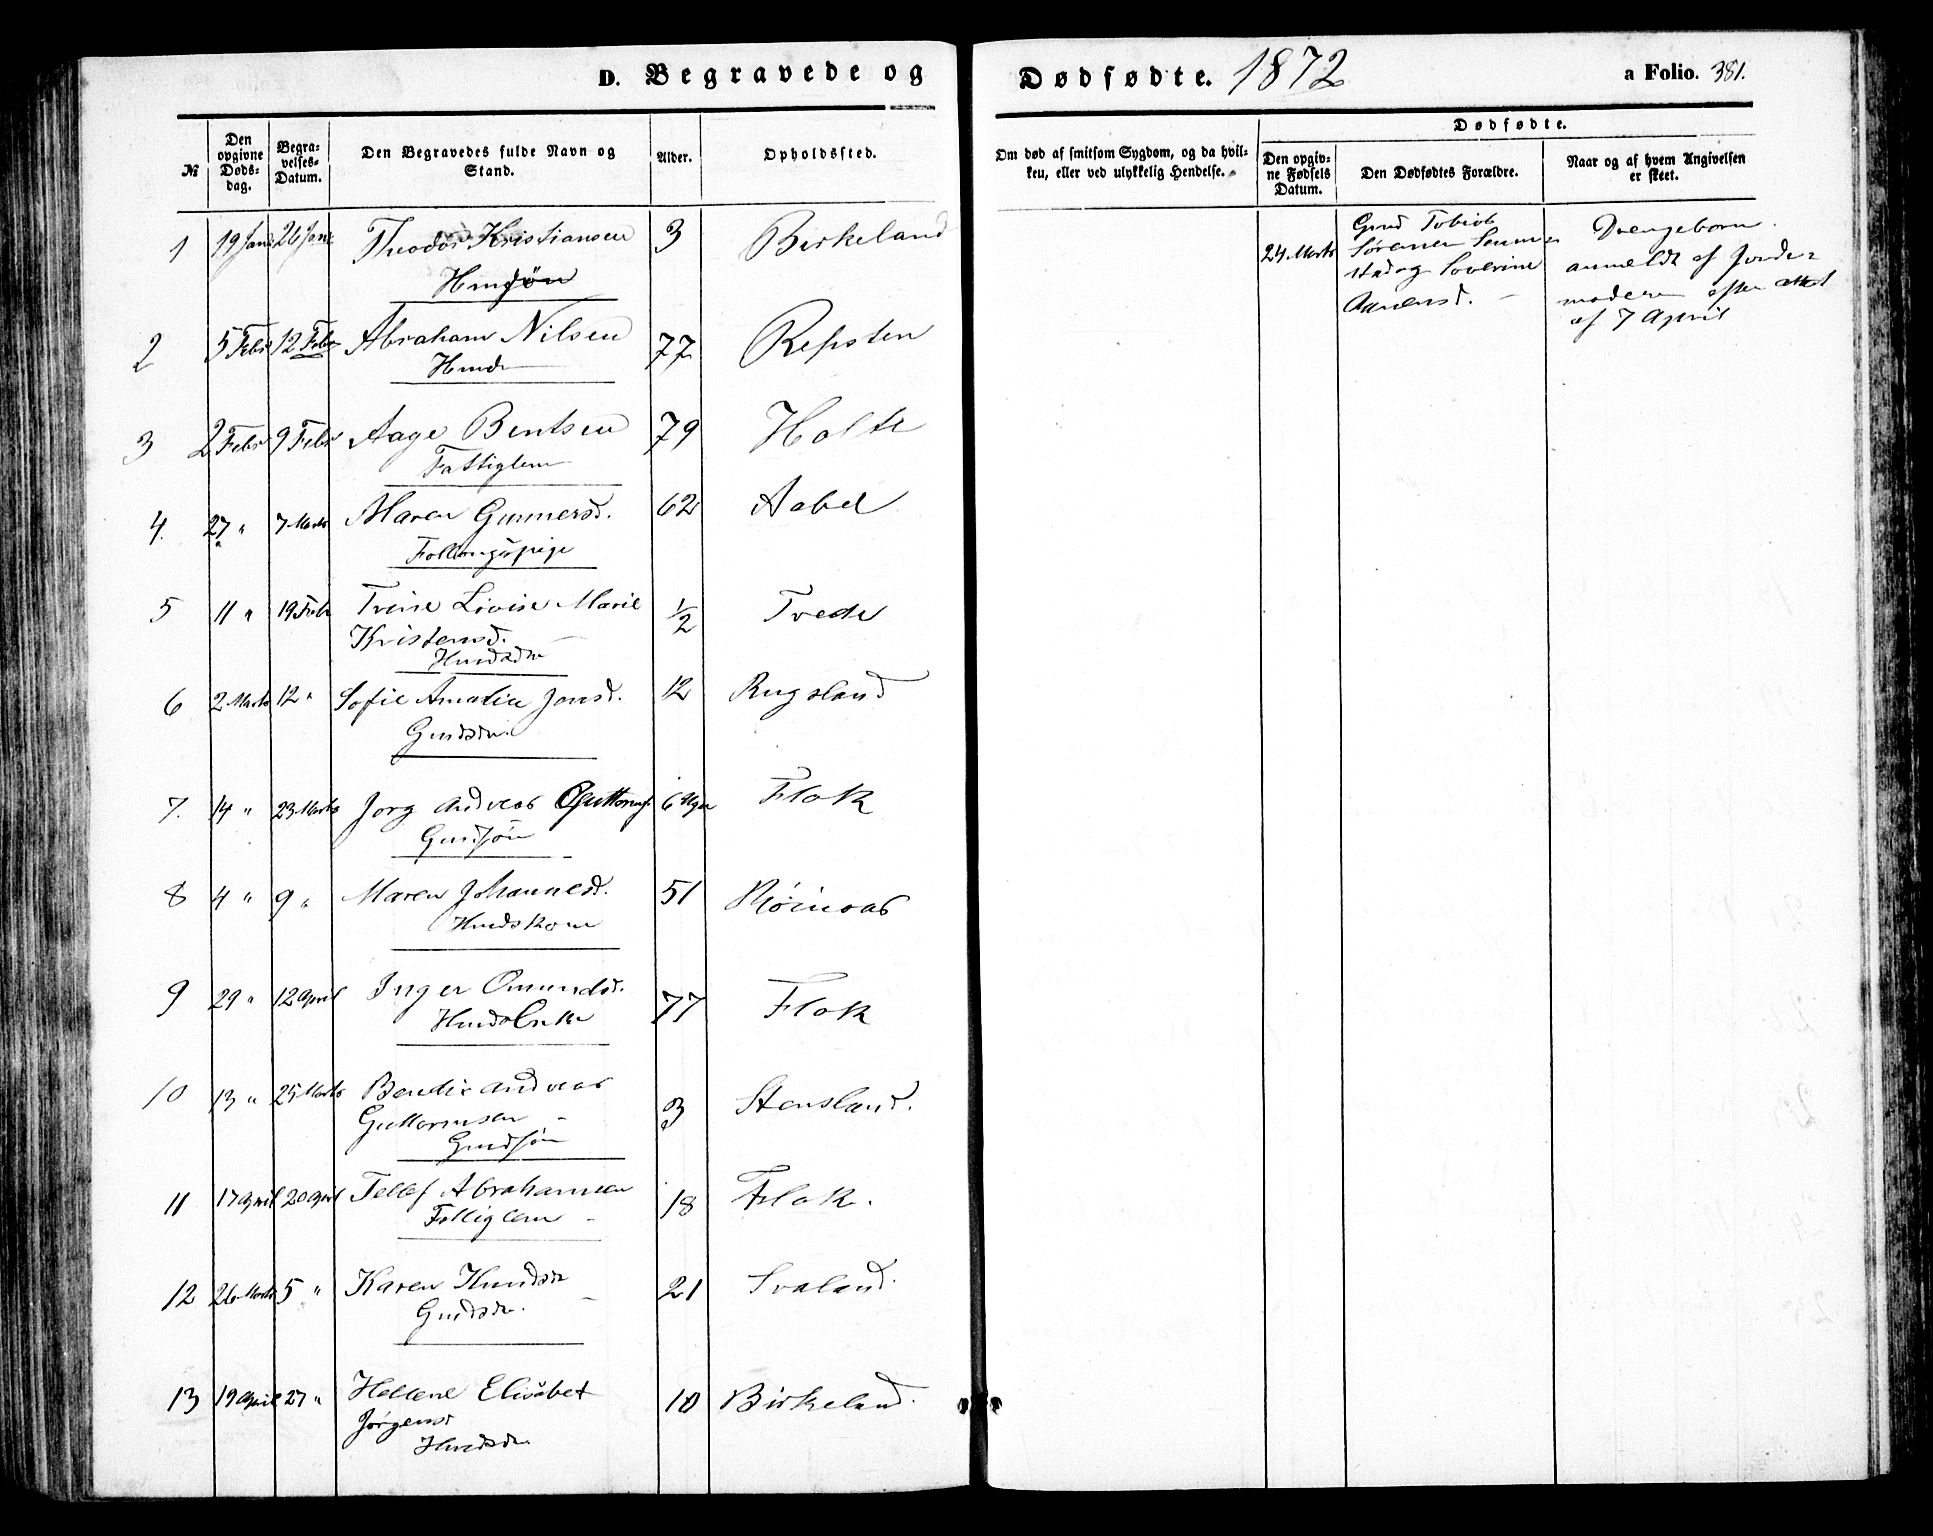 D. Begravede og
Dødfødte. 1872
a Folio. 381.
№
Den opgivne Døds-dag.
Begra-velses-Datum.
Den Begravedes fulde Navn og Stand.
Alder.
Opholdssted.
Om død af smitsom Sygdom, og da hvil-ken, eller ved ulykkelig Hendelse.
Dødfødte.
Den opgiv-ne Fødsels Datum.
Den Dødfødtes Forældre.
Naar og af hvem Angivelsen er skeet.
1 19 Jan 26 Jan Theodor Kristiansen 3 Birkeland
Hmdsøn
2 5 Febr 12 Febr Abraham Nilsen 77 Repsten
Hmd
3 2 Febr 9 Febr Aage Bentsen 79 Holte
Fattiglem
4. 27 " 7 Marts Maren Gunnersd. 62 Aabel
5 11 " 19 Febr Trine Lovise Marie ½ Tvede
Kristensd.
Hmdsdtr
6 2 Marts 12 " Sofie Amalie Jonsd. 12 Rugsland
Gmdsdtr.
7. 14 " 23 Marts Jorg Andreas Guttorms. 6 Uger Flak
Gmdsøn
8 4 " 9 " Maren Johannesd. 51
Hmdskone
9 29 " 12 April Inger Omundsd. 77 Flak
Hmdsenke
10 13 " 25 Marts Bendix Andreas 3 Stensland.
Guttormsen
Gmdsøn
11 17 April 20 April Tellef Abrahamsen 18 Flak.
Fattiglem
12 26 Marts 5 " Karen Knudsdr 21 Svaland.
Gmdsdtr.
13 19 April 27 " Hellene Elisabet 10 Birkeland.
Jørgensd
Hmdsdtr
24 Marts
Gmd Tobias
Sørensen
og Severine
Aanensd.
Drengebarn.
anmeldt af Jorde-
moderen efter attest
af 7 April